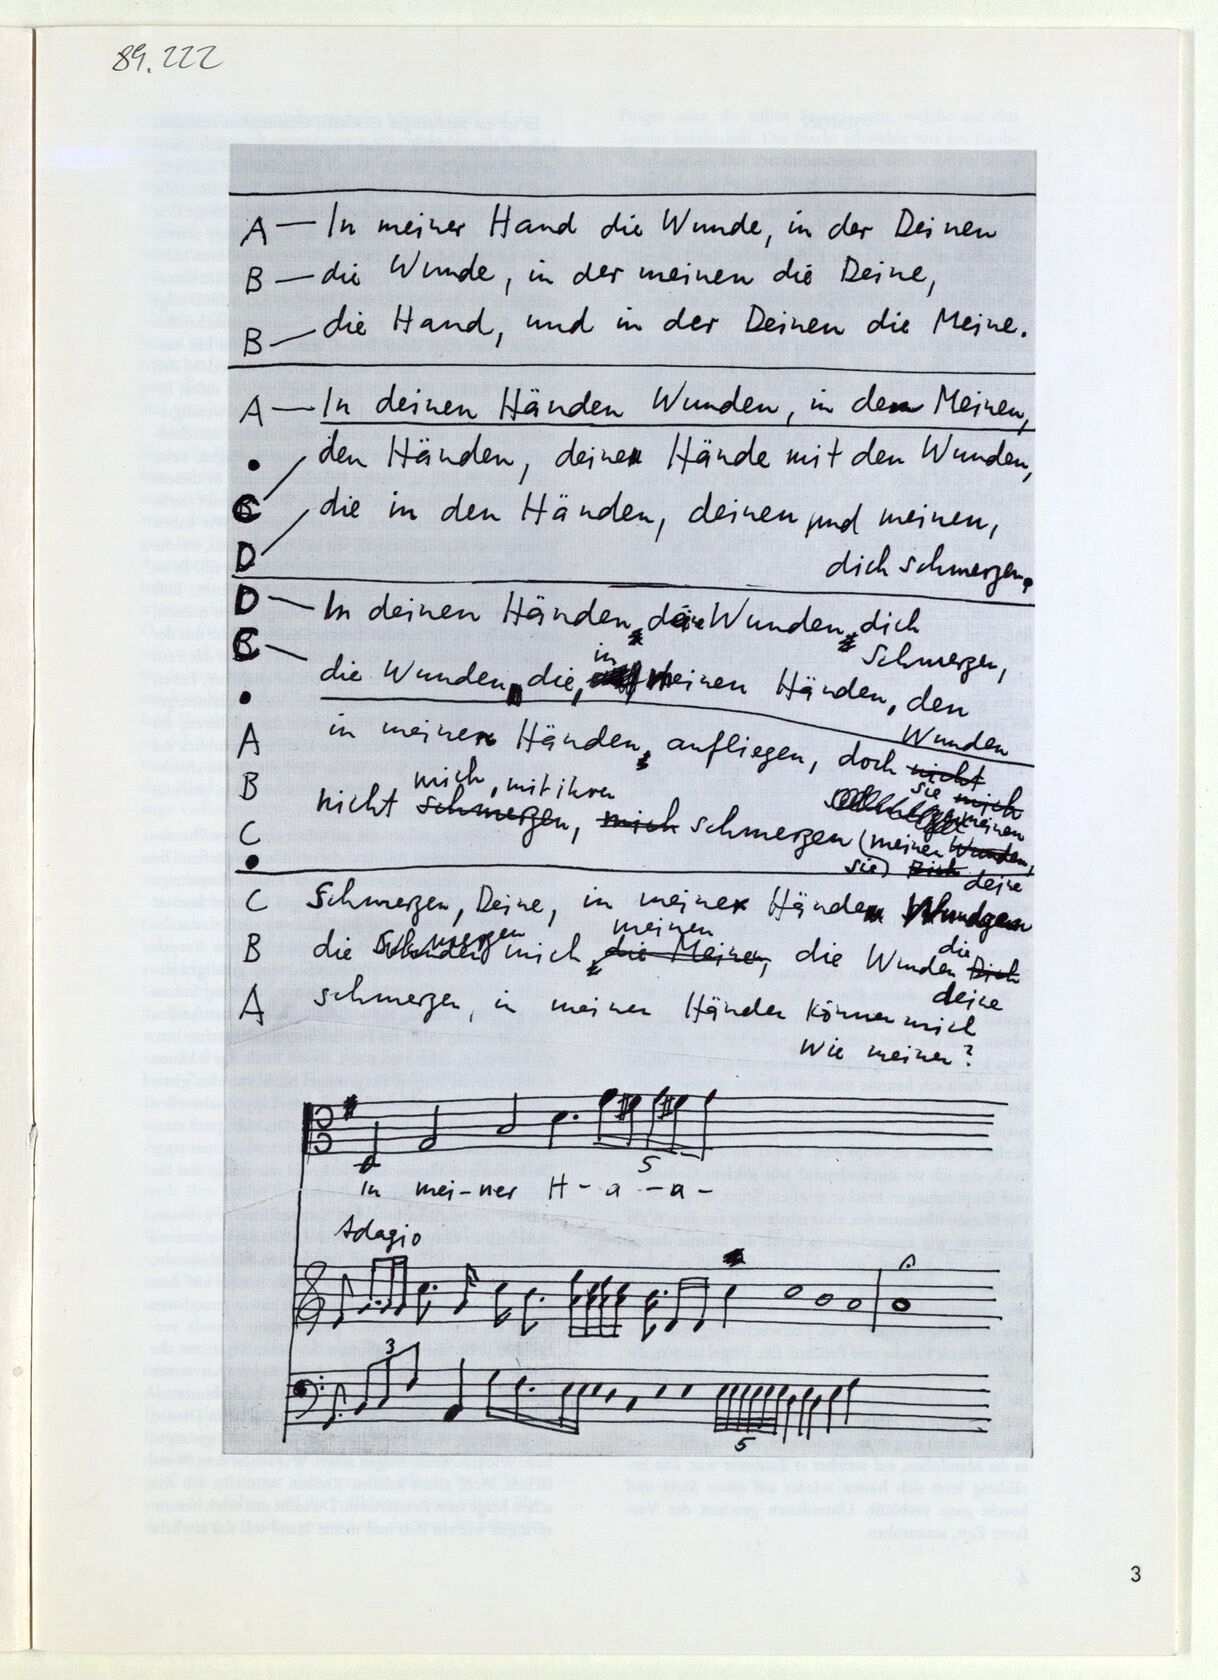 89.222
A — In meiner Hand die Wunde, in der Deinen
B — die Wunde, in der meinen die Deine,
B — die Hand, und in der Deinen die Meine.
A — In deinen Händen Wunden, in den Meinen,
• den Händen, deinen Hände mit den Wunden,
C die in den Händen, deinen und meinen,
D dich schmerzen.
D — In deinen Händen, die Wunden, dich
schmerzen,
C — die Wunden, die, in meinen Händen, den
•
Wunden
A in meinen Händen, aufliegen, doch nicht
sie mich
B mich, mit ihren
nicht schmerzen, mich schmerzen (meinen Wunden,
meinen
C sie) Dich deine
•
C Schmerzen, Deine, in meinen Händen
B die Schmerzen mich, die Meinen, die Wunden die Dich
meinen
deine
A schmerzen, in meinen Händen können mich
wie meinen?
5
In mei-ner H-a-a-
Adagio
3
5
3